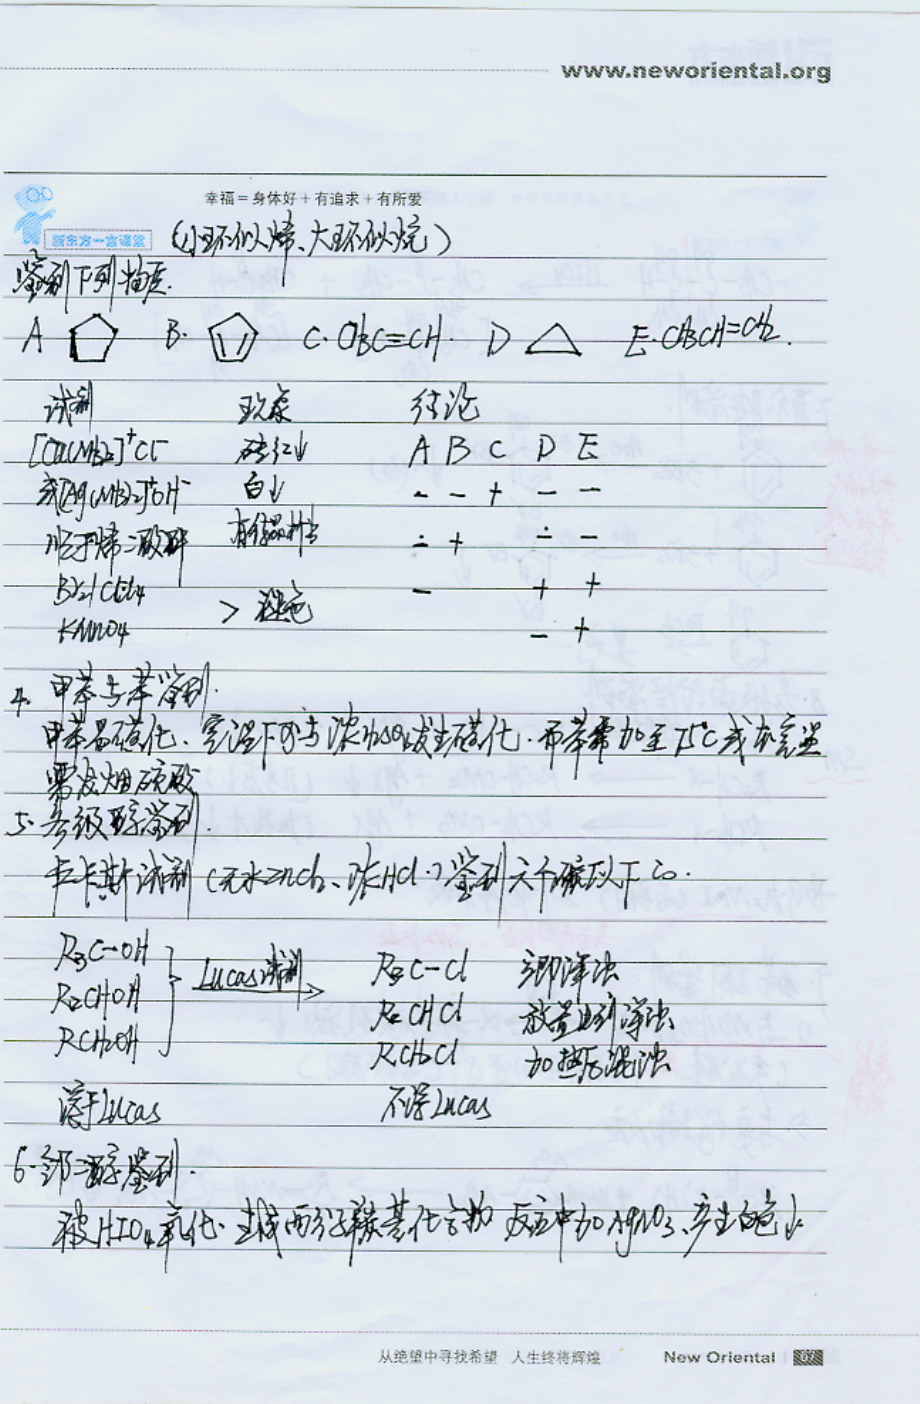 www.neworiental.org
幸福=身体好+有追求+有所爱
新东方一言课堂
(小环似烯、大环似烷)
鉴别下列物质.
A B. C. CH3C≡CH D E. CH3CH=CH2.
试剂 现象 结论
[Cu(NH3)2]+Cl- 砖红↓ A B C D E
或[Ag(NH3)2]+OH- 白↓ - - + - -
顺丁烯二酸酐 有结晶析出 - + - -
Br2/CCl4 - + +
KMnO4 > 褪色 - +
4. 甲苯与苯鉴别.
甲苯易磺化、室温下可与浓H2SO4发生磺化.而苯需加至75℃或在室温
需发烟硫酸
5. 各级醇鉴别.
卢卡斯试剂 (无水ZnCl2、浓HCl.)鉴别六个碳以下的.
R3C-OH R3C-Cl 立即浑浊
R2CHOH Lucas试剂 R2CHCl 放置出现浑浊
RCH2OH RCH2Cl 加热后混浊
溶于Lucas 不溶Lucas
6. 邻二醇鉴别.
被HIO4氧化.生成两分子羰基化合物 反应中加AgNO3、产生白色↓
从绝望中寻找希望 人生终将辉煌 New Oriental